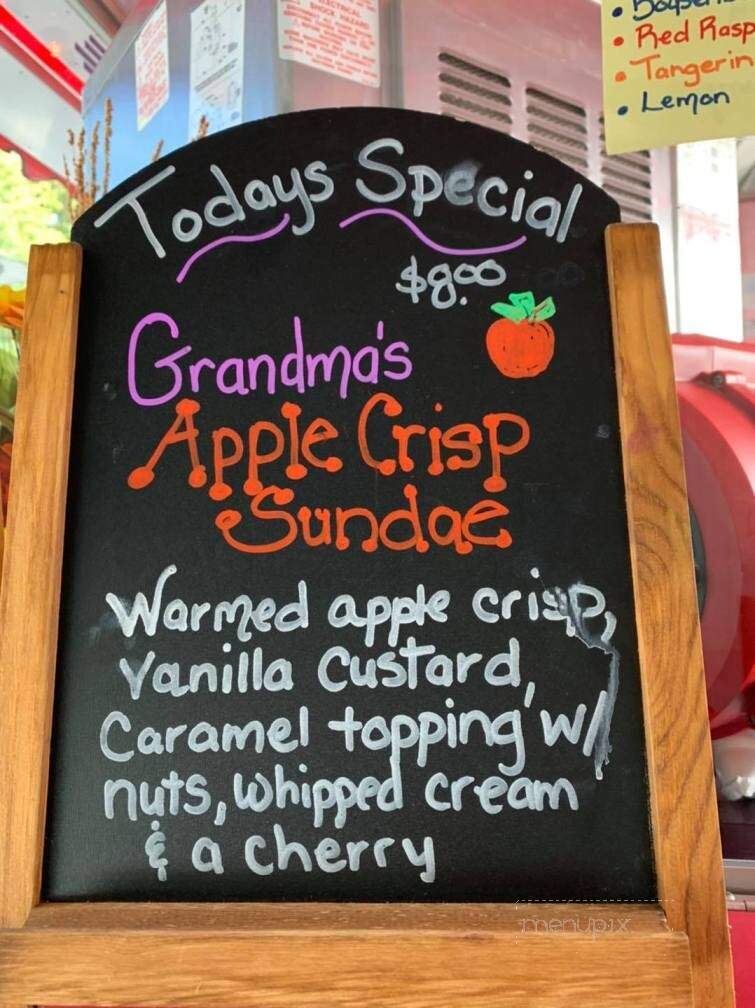 ELECTRICAL
SHOCK HAZARD
• Red Rasp
• Tangerin
• Lemon
Todays Special
$8.00
Grandma's
Apple Crisp
Sundae
Warmed apple crisp,
Vanilla Custard,
Caramel topping w/
nuts, whipped cream
& a cherry
menupix